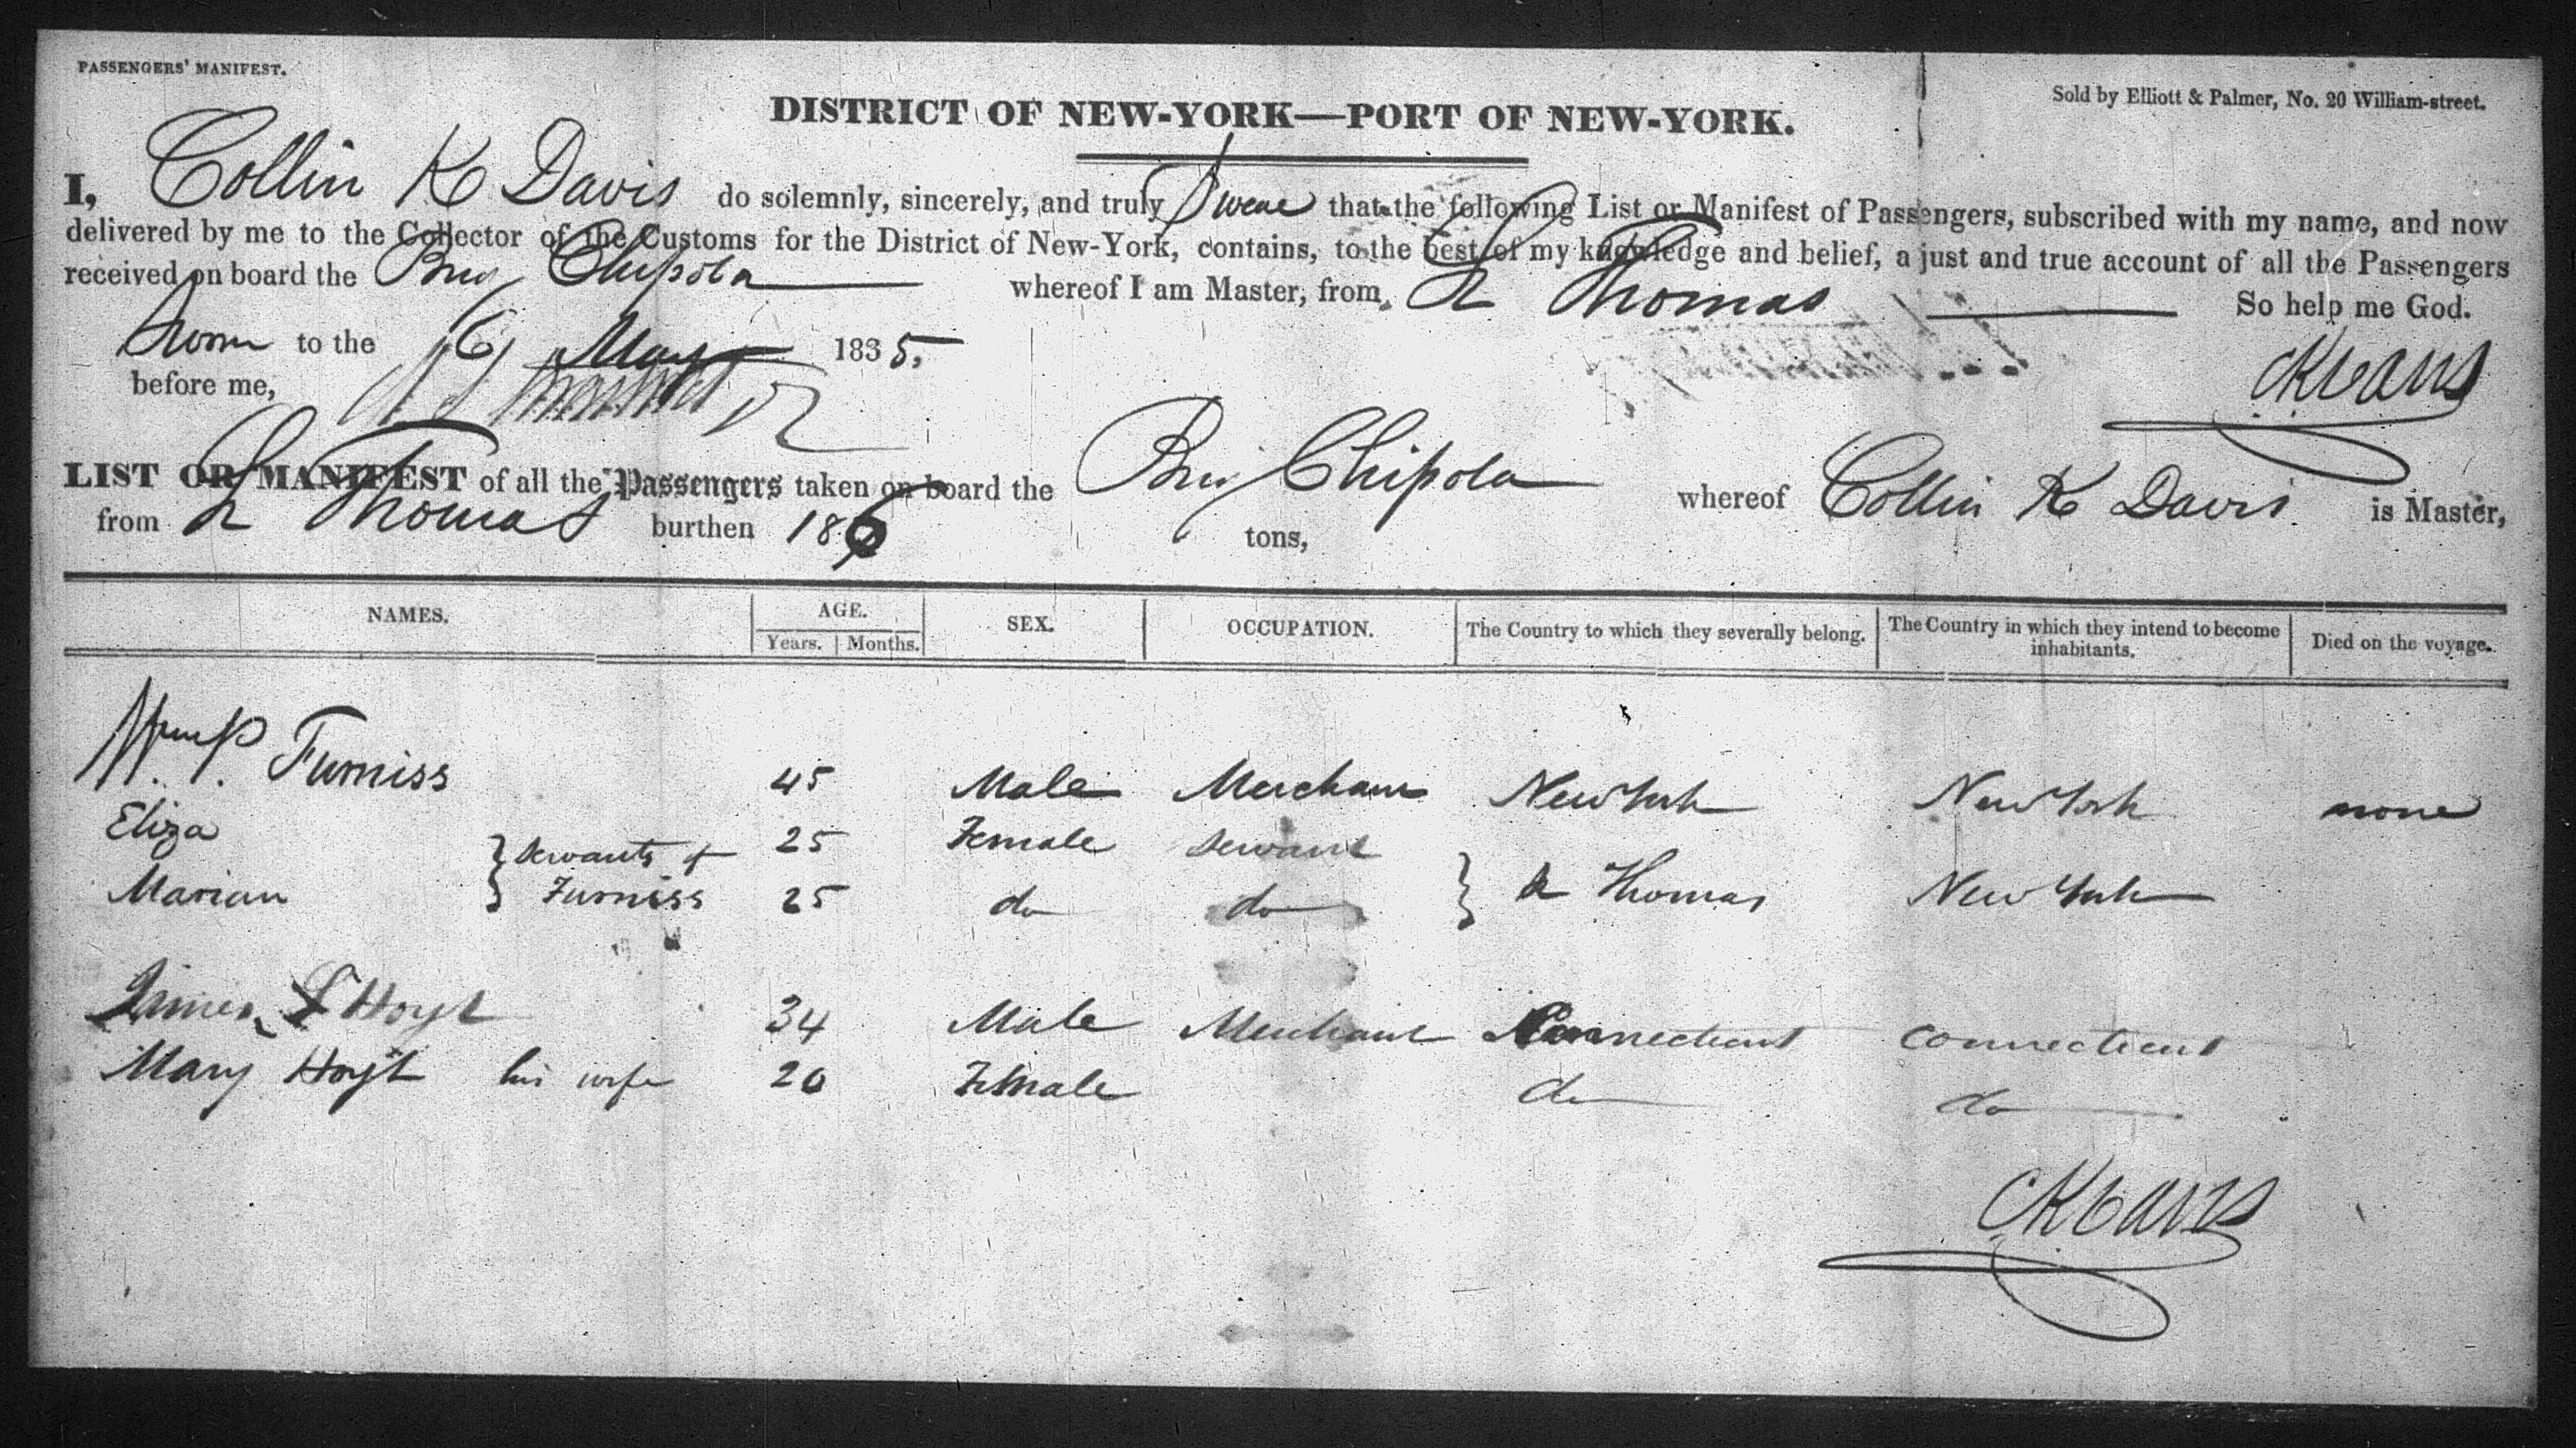 PASSENGERS' MANIFEST.
Sold by Elliott & Palmer, No. 20 William-street.
DISTRICT OF NEW-YORK—PORT OF NEW-YORK.
I, Collin K Davis do solemnly, sincerely, and truly Swear that the following List or Manifest of Passengers, subscribed with my name, and now
delivered by me to the Collector of the Customs for the District of New-York, contains, to the best of my knowledge and belief, a just and true account of all the Passengers
received on board the Brig Chipola whereof I am Master, from St Thomas So help me God.
Sworn to the 16 May 1835.
before me,
CK Davis
LIST OR MANIFEST of all the Passengers taken on board the Brig Chipola whereof Collin K Davis is Master,
from St Thomas burthen tons,
NAMES. AGE. SEX. OCCUPATION. The Country to which they severally belong. The Country in which they intend to become inhabitants. Died on the voyage.
Years. Months.
W. P. Furniss 45 Male Merchant New York New York none
Eliza } Servants of 25 Female Servant
Marian } Furniss 25 do do } St Thomas New York
James Hoyt 34 Male Merchant Connecticut Connecticut
Mary Hoyt his wife 20 Female do do
CK Davis